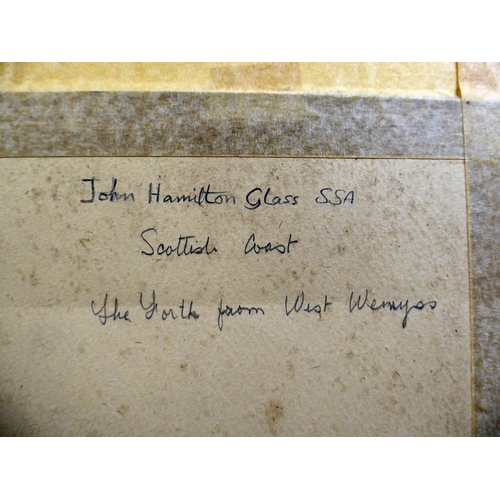 John Hamilton Glass SSA
Scottish Coast
The Forth from West Wemyss